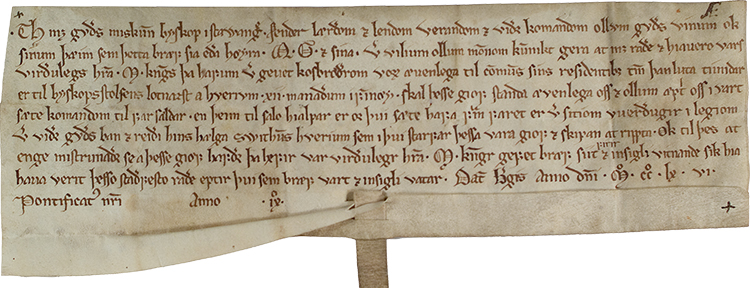 Th mz gvds miskun byskop i stavangr. sendir lærdom & lendom verandom & vidr komandom ollum gvds vinum ok
sinum þæim sem þetta bræf sia eda høyra Q. G. & sina. vilium ollum monnom kunnikt gera at mz rade & hiavero vars
virdulegs hrra. M. kungs þa havum gevet kosbrœdrom vorom ævenlega til comuns sins residentibz tm þan luta tiundar
er til byskopsstolsens lotnaest a hverium .xii. manadum i skal þesse giof standa ævenlega oss & ollum æpt oss i vart
sæte komandom til en þeim til salo hialpar er þui sæte hava er sitiom uverdugir i legiom
vidr gvds ban & reidi hins halga svithuns hverium sem i þui starfar þessa vara giof & skipan at rippta. Ok til þes at
enge mistrunade se a þesse giof þa hever var virdulegr hrra. M. kungr gevet bræf sit firir & insigli vitnande sik hia
hava verit þesso stadfesto rade eptir þui sem bræf vart & insigli vatar. Dat Bgis Anno dni. M. cc. lx. vi.
Pontificat nri Anno . ix.